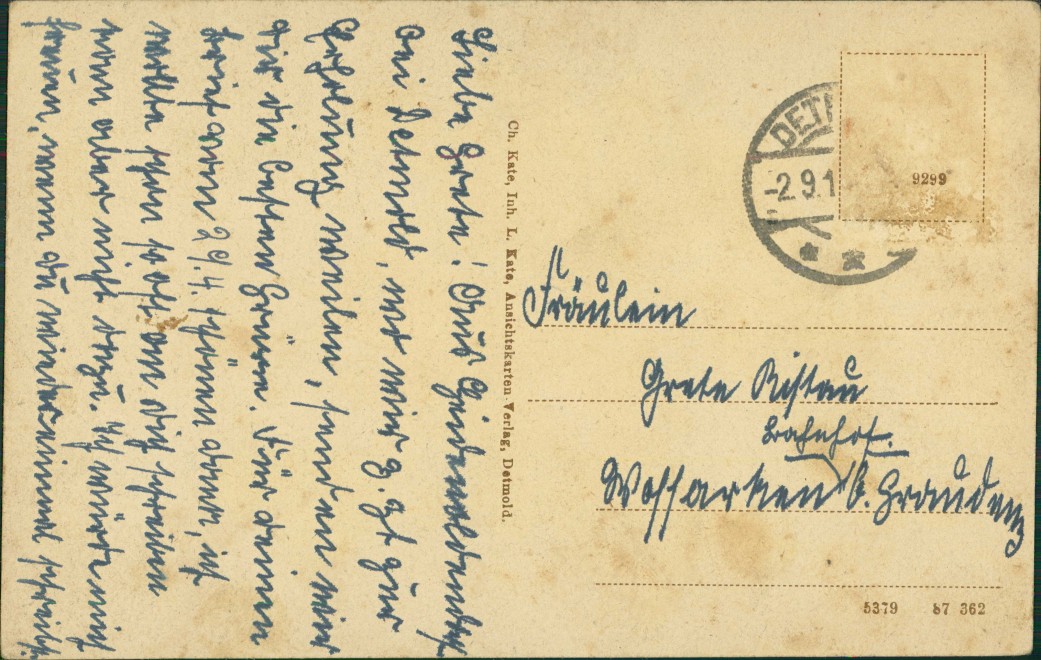 Liebe Grete! Aus Heidenoldendorf
bei Detmold, wo wir z. Zt zur
Erholung weilen, senden wir
dir die besten Grüße. Für deinen
Brief vom 29.4. schönen Dank, ich
wollte schon so oft an dich schreiben
kam aber nicht dazu. Ich würde mich
freuen, wenn du wieder einmal schreibst.
Ch. Kate, Inh. L. Kate, Ansichtskarten-Verlag, Detmold.
DET
-2.9.1
9299
Fräulein
Grete Ristau
Bahnhof.
Wossarken b. Graudenz
5379 87 362